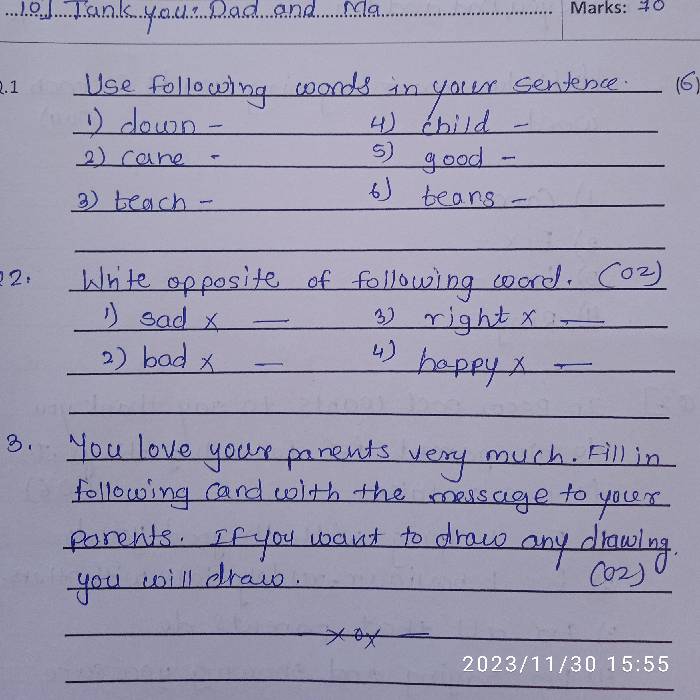 10] Tank you: Dad and Ma
Marks: 10
Q.1 Use following words in your sentence. (6)
1) down - 4) child -
2) care - 5) good -
3) teach - 6) tears -
Q2. Write opposite of following word. (02)
1) sad x — 3) right x —
2) bad x — 4) happy x —
3. You love your parents very much. Fill in
following card with the message to your
parents. If you want to draw any drawing.
you will draw. (02)
— x o x —
2023/11/30 15:55